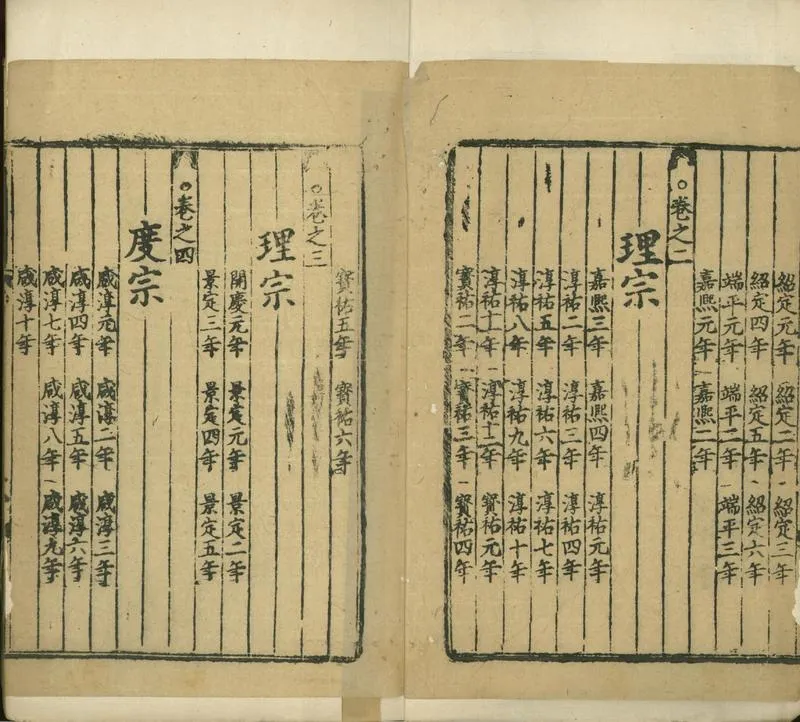 紹定元年 紹定二年 紹定三年
紹定四年 紹定五年 紹定六年
端平元年 端平二年 端平三年
嘉熙元年 嘉熙二年
○卷之二
理宗
嘉熙三年 嘉熙四年 淳祐元年
淳祐二年 淳祐三年 淳祐四年
淳祐五年 淳祐六年 淳祐七年
淳祐八年 淳祐九年 淳祐十年
淳祐十一年 淳祐十二年 寶祐元年
寶祐二年 寶祐三年 寶祐四年
寶祐五年 寶祐六年
○卷之三
理宗
開慶元年 景定元年 景定二年
景定三年 景定四年 景定五年
○卷之四
度宗
咸淳元年 咸淳二年 咸淳三年
咸淳四年 咸淳五年 咸淳六年
咸淳七年 咸淳八年 咸淳九年
咸淳十年